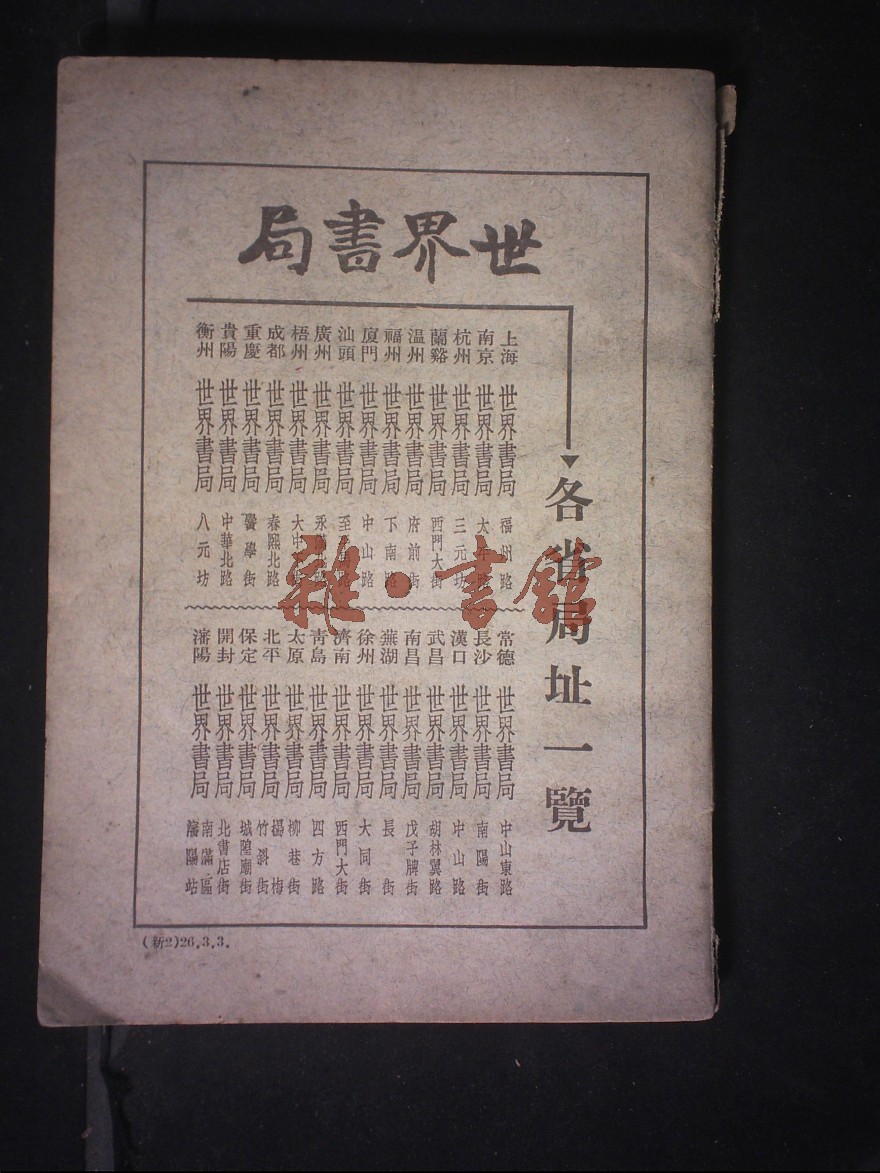 世界書局
各省局址一覽
上海 世界書局 福州路
南京 世界書局 太平路
杭州 世界書局 三元坊
蘭谿 世界書局 西門大街
温州 世界書局 府前街
福州 世界書局 下南路
廈門 世界書局 中山路
汕頭 世界書局 至
廣州 世界書局 永
梧州 世界書局 大中
成都 世界書局 春熙北路
重慶 世界書局 學街
貴陽 世界書局 中華北路
衡州 世界書局 八元坊
常德 世界書局 中山東路
長沙 世界書局 南陽街
漢口 世界書局 中山路
武昌 世界書局 胡林翼路
南昌 世界書局 戊子牌街
蕪湖 世界書局 長街
徐州 世界書局 大同街
濟南 世界書局 西門大街
青島 世界書局 四方路
太原 世界書局 柳巷街
北平 世界書局 楊梅竹斜街
保定 世界書局 城隍廟街
開封 世界書局 北書店街
瀋陽 世界書局 南滿區瀋陽站
(新2)26.3.3.
雜·書館